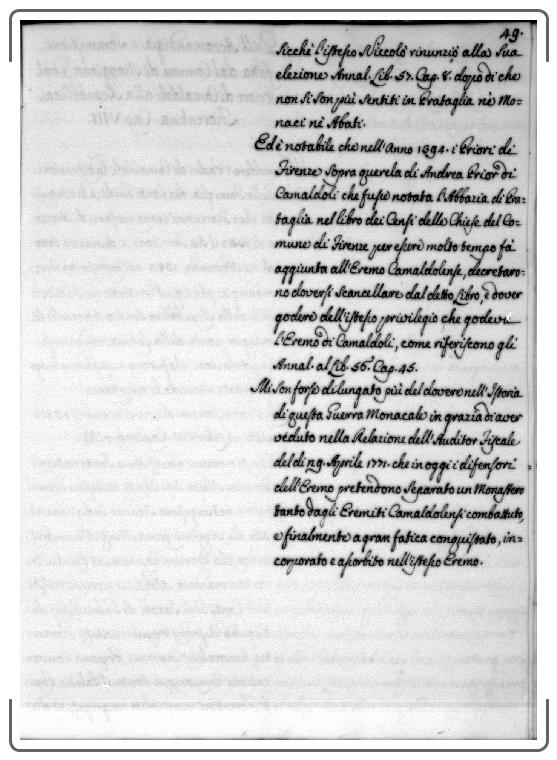 49.
Sicchè l'istesso Niccolò rinunziò alla Sua
elezione Annal. Lib. 57. Cap. 8. dopo di che
non si son più sentiti in Prataglia nè Mo-
naci nè Abati.
Ed è notabile che nell'Anno 1294. i Priori di
Firenze sopra querela di Andrea Prior di
Camaldoli che fusse notata l'Abbazia di Pra=
taglia nel libro dei Censi delle Chiese del Co-
mune di Firenze per essere molto tempo fà
aggiunta all'Eremo Camaldolense, decretaro=
no doversi scancellare dal detto Libro, e dover
godere dell'istesso privilegio che godeva
l'Eremo di Camaldoli, come riferiscono gli
Annal. al Lib. 56. Cap. 45.
Mi son forse dilungato più del dovere nell'Istoria
di questa Guerra Monacale in grazia di aver
veduto nella Relazione dell'Auditor Fiscale
del dì 29. Aprile 1771. che in oggi i difensori
dell'Eremo pretendono Separato un Monastero
tanto dagli Eremiti Camaldolensi combattuto,
e finalmente a gran fatica conquistato, in=
corporato e assorbito nell'istesso Eremo.